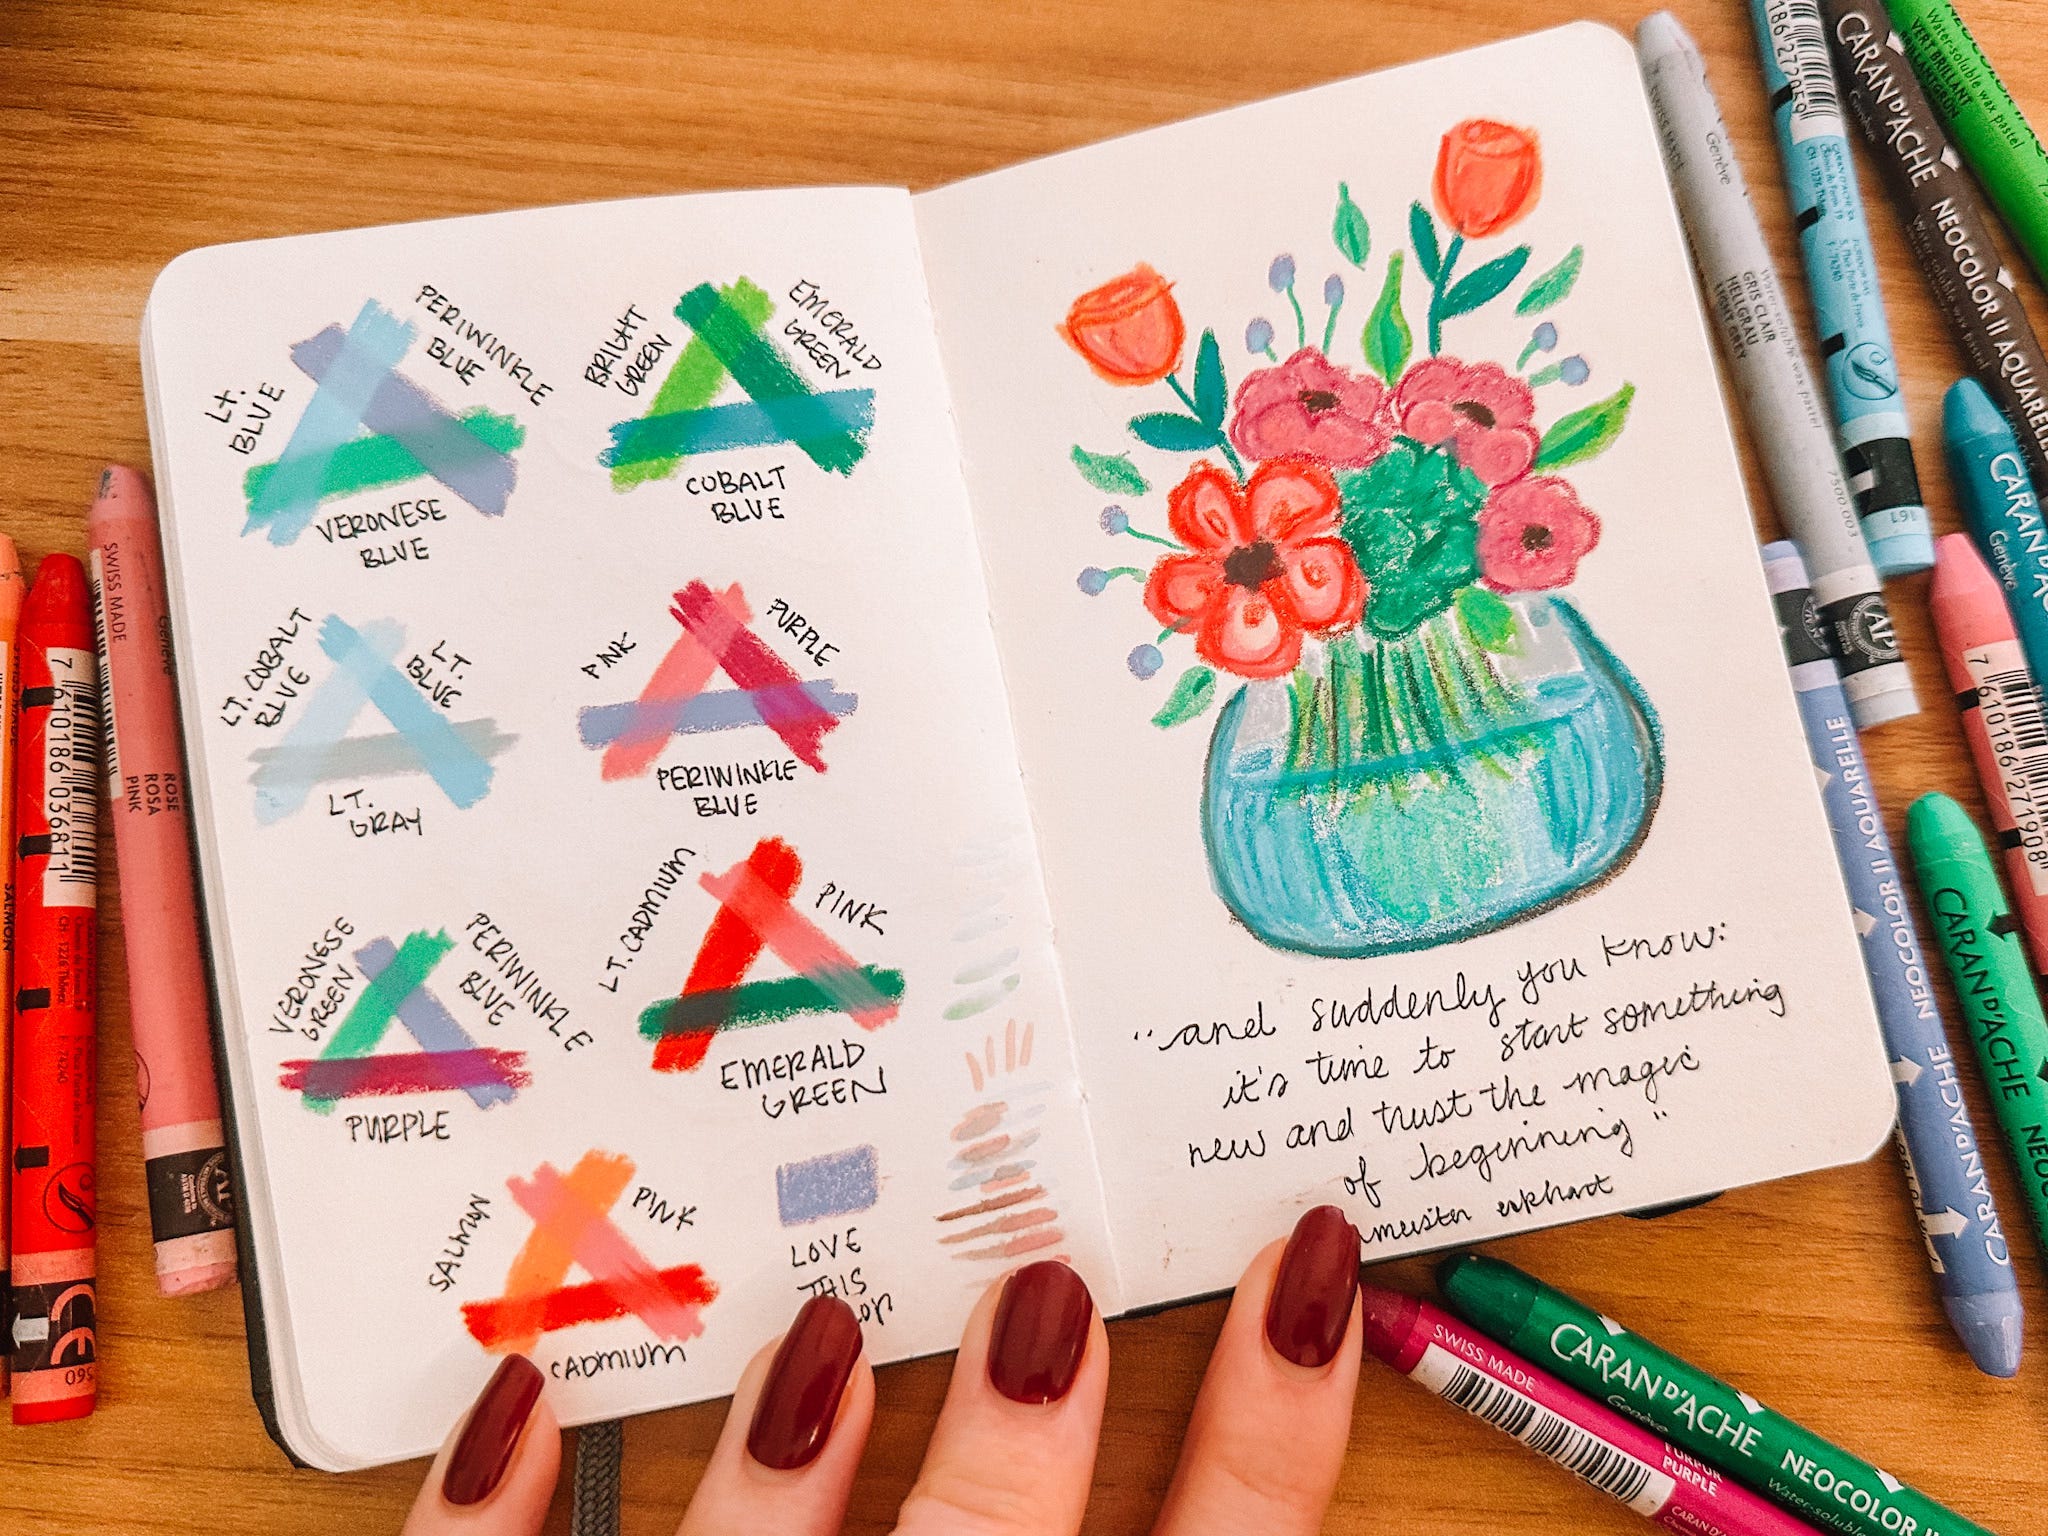 LT.
BLUE
PERIWINKLE
BLUE
VERONESE
BLUE
BRIGHT
GREEN
EMERALD
GREEN
COBALT
BLUE
LT. COBALT
BLUE
LT.
BLUE
LT.
GRAY
PINK
PURPLE
PERIWINKLE
BLUE
VERONESE
GREEN
PERIWINKLE
BLUE
PURPLE
LT. CADMIUM
PINK
EMERALD
GREEN
SALMON
PINK
CADMIUM
LOVE
THIS
"and suddenly you know:
it's time to start something
new and trust the magic
of beginning"
meister eckhart
SALMON
7 610186 036811
CE
560
SWISS MADE
Genève
ROSE
ROSA
PINK
SWISS MADE
Genève
Water-soluble wax pastel
GRIS CLAIR
HELLGRAU
LIGHT GREY
7500.003
186 272059
161
CARAN D'ACHE
Genève
NEOCOLOR II AQUARELLE
Water-soluble wax pastel
VERT BRILLANT
CARAN D'ACHE
Genève
7 610186 271908
CARAN D'ACHE NEOCOLOR II AQUARELLE
CARAN D'ACHE
SWISS MADE
PURPUR
PURPLE
CARAN D'ACHE
Genève
NEOCOLOR II